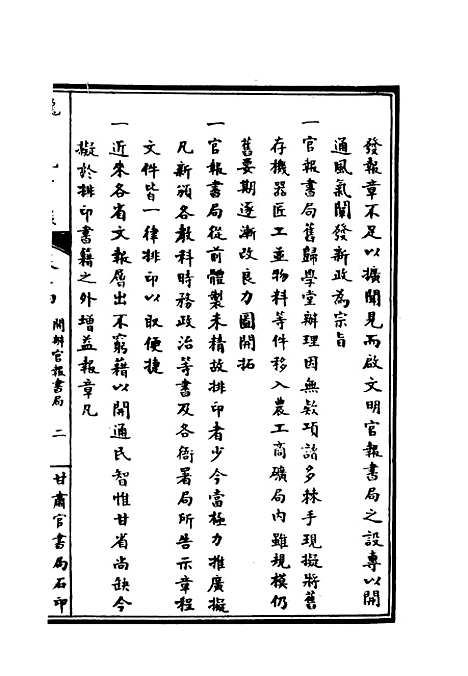 發報章不足以擴聞見而啟文明官報書局之設專以開
通風氣闡發新政為宗旨
一官報書局舊歸學堂辦理因無欵項諸多棘手現擬將舊
存機器匠工並物料等件移入農工商礦局內雖規模仍
舊要期逐漸改良力圖開拓
一官報書局從前體製未精故排印者少今當極力推廣擬
凡新頒各教科時務政治等書及各衙署局所告示章程
文件皆一律排印以取便捷
一近來各省文報層出不窮藉以開通民智惟甘省尚缺今
擬於排印書籍之外增益報章凡
開辦官報書局 二
甘肅官書局石印